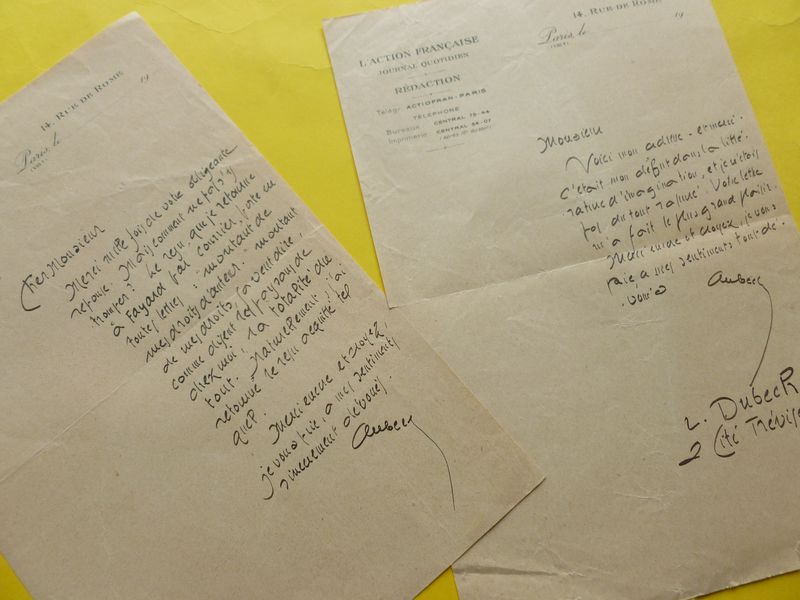 14, RUE DE ROME
Paris, le
(VIIIe)
19
Cher Monsieur
Merci mille fois de votre obligeante
réponse. Mais comment ne pas s'y
tromper? Le reçu, que je retourne
à Fayard par courrier, porte en
toutes lettres : montant de
mes droits d'auteur. montant
de mes droits, ça veut dire,
comme disent les paysans de
chez moi, la totalité du
tout. Naturellement, j'ai
retourné le reçu acquitté tel
quel.
Merci encore et croyez,
je vous prie, à mes sentiments
sincèrement dévoués.
Dubech
L'ACTION FRANÇAISE
JOURNAL QUOTIDIEN
RÉDACTION
Télégr. ACTIOFRAN-PARIS
TÉLÉPHONE
Bureaux CENTRAL
Imprimerie CENTRAL
14, RUE DE ROME
Paris, le
(VIIIe)
19
Monsieur
Voici mon adresse - et merci.
C'était mon début dans la litté-
rature d'imagination, et je n'étais
pas du tout rassuré. Votre lettre
m'a fait le plus grand plaisir.
Merci encore et croyez, je vous
prie, à mes sentiments tout dé-
voués
Dubech
L. Dubech
2 Cité Trévise